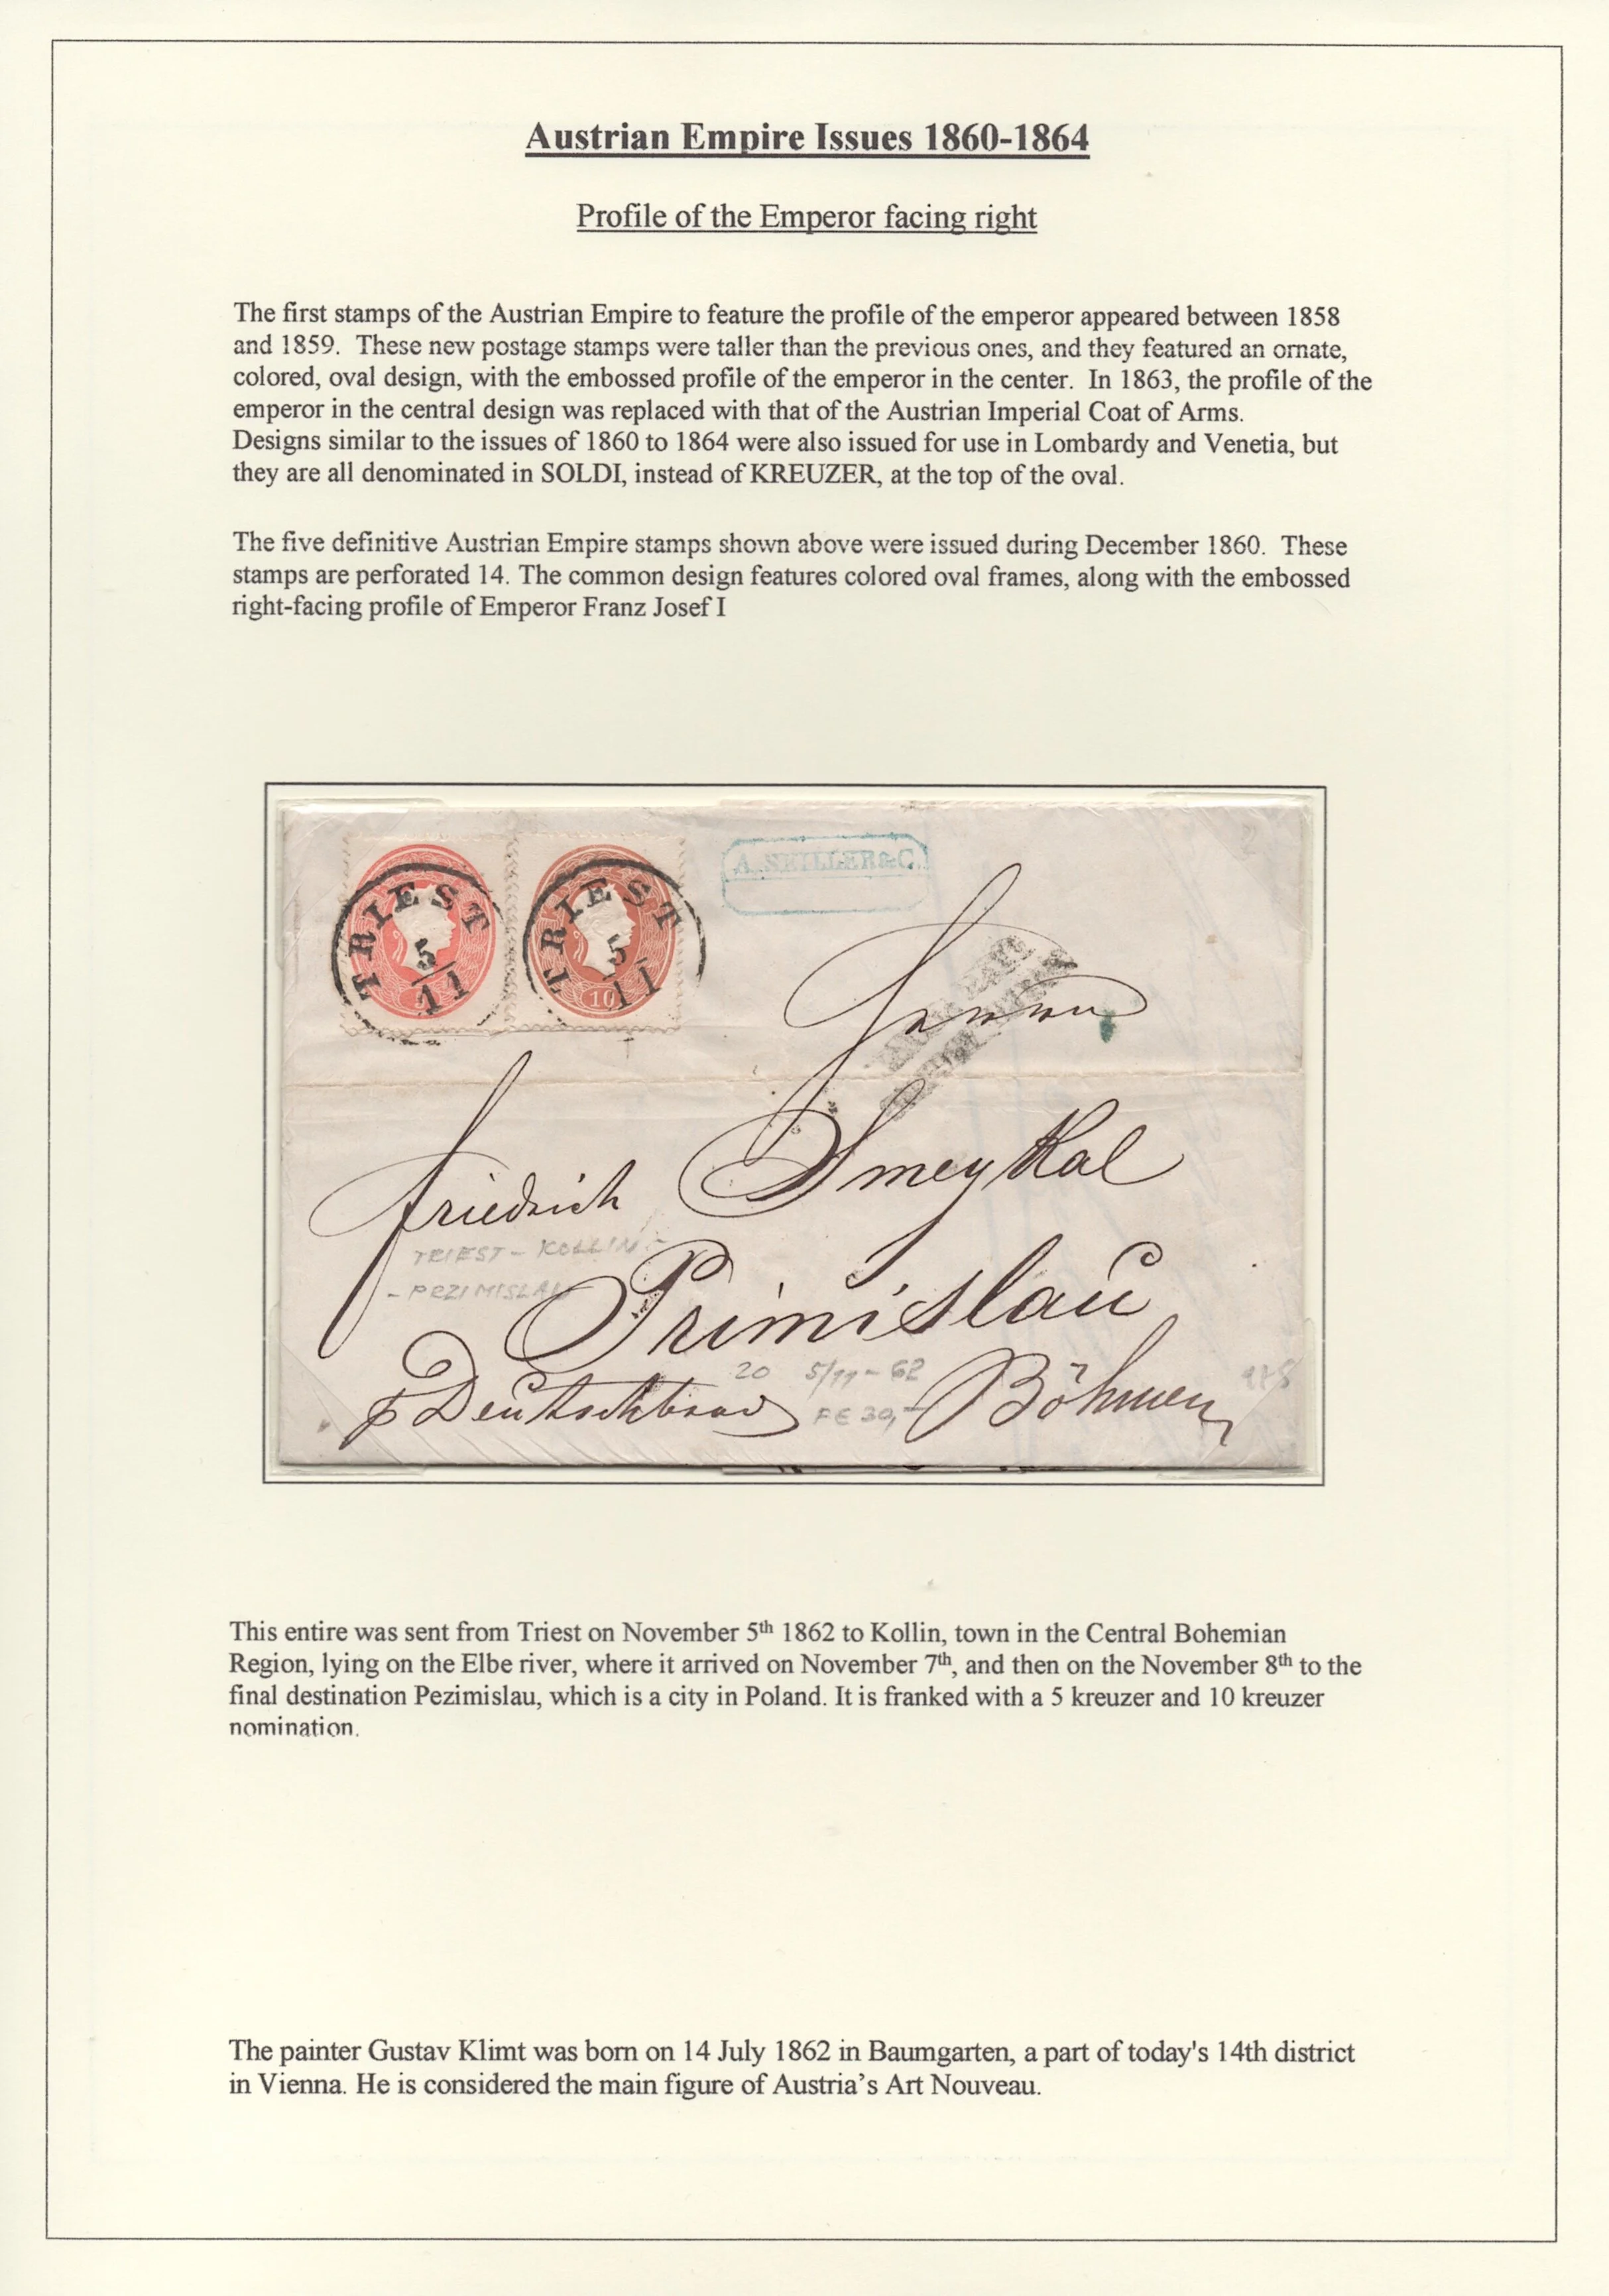 Austrian Empire Issues 1860-1864
Profile of the Emperor facing right
The first stamps of the Austrian Empire to feature the profile of the emperor appeared between 1858
and 1859. These new postage stamps were taller than the previous ones, and they featured an ornate,
colored, oval design, with the embossed profile of the emperor in the center. In 1863, the profile of the
emperor in the central design was replaced with that of the Austrian Imperial Coat of Arms.
Designs similar to the issues of 1860 to 1864 were also issued for use in Lombardy and Venetia, but
they are all denominated in SOLDI, instead of KREUZER, at the top of the oval.
The five definitive Austrian Empire stamps shown above were issued during December 1860. These
stamps are perforated 14. The common design features colored oval frames, along with the embossed
right-facing profile of Emperor Franz Josef I
TRIEST
5
11
TRIEST
5
11
10
Herrn
Friedrich Smeykal
TRIEST - KOLLIN -
- PRZIMISLAU
Primislau
20 5/11 - 62
p Deutschbrod Böhmen
FE 30,-
This entire was sent from Triest on November 5th 1862 to Kollin, town in the Central Bohemian
Region, lying on the Elbe river, where it arrived on November 7th, and then on the November 8th to the
final destination Pezimislau, which is a city in Poland. It is franked with a 5 kreuzer and 10 kreuzer
nomination.
The painter Gustav Klimt was born on 14 July 1862 in Baumgarten, a part of today's 14th district
in Vienna. He is considered the main figure of Austria’s Art Nouveau.